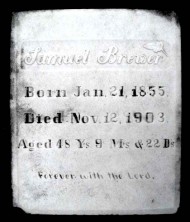 Samuel Brewer
Born Jan. 21, 1855.
Died Nov. 12, 1903.
Aged 48 Ys 9 Ms & 22 Ds
Forever with the Lord.